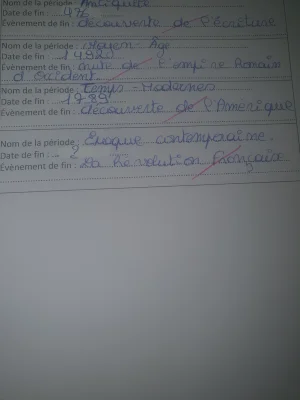 Nom de la période : Antiquité
Date de fin : ....476
Évènement de fin : découverte de l'écriture
Nom de la période : Moyen-Âge
Date de fin : ....1492
Évènement de fin : chute de l'empire Romain
d'Occident
Nom de la période : Temps-Modernes
Date de fin : ....1789
Évènement de fin : découverte de l'Amérique
Nom de la période : Époque contemporaine.
Date de fin : ... ?
Évènement de fin : La Révolution française